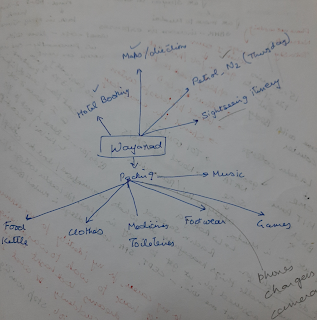 Maps/direction
Petrol - N2 (Thursday)
Hotel Booking
Sightseeing itinery
Wayanad
Packing
Music
Food
kettle
Clothes
Medicines
Toileteries
Footwear
Games
phones
chargers
camera